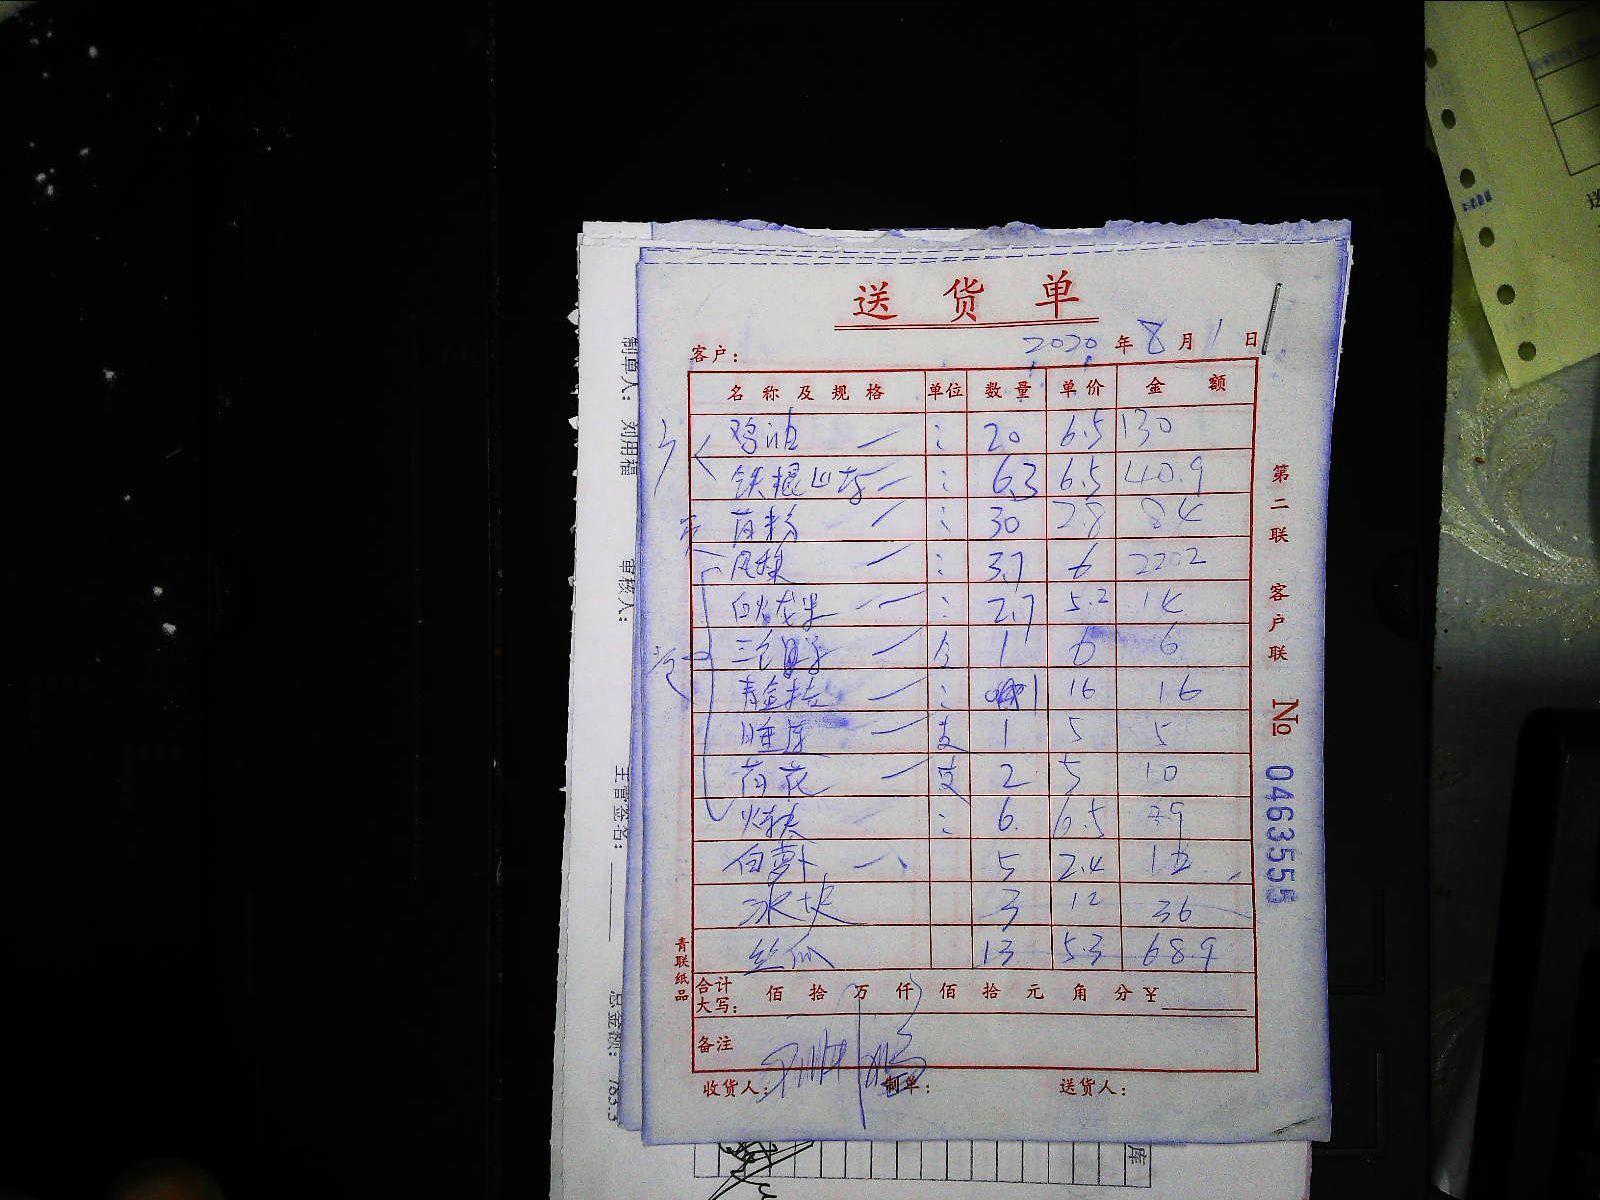 送 货 单
客户： 2020 年 8 月 1 日
名 称 及 规 格 单位 数 量 单 价 金 额
鸡油 — : 20 6.5 130
铁棍山药 — : 6.3 6.5 40.9
苕粉 — : 30 2.8 84
凤梨 — : 3.7 6 22.2
白火龙果 — : 2.7 5.2 14
三色堇 — 个 1 6 6
青金桔 — : 1 16 16
睡莲 — 支 1 5 5
荷花 — 支 2 5 10
: 6 6.5 39
白萝卜 — 5 2.4 12
冰块 3 12 36
丝瓜 13 5.3 68.9
合计大写： 佰 拾 万 仟 佰 拾 元 角 分 ¥
备注
收货人： 制单： 送货人：
第二联 客户联
№ 0463555
青联纸品
制单人： 刘用福
审核人：
主管签名：
总金额： 763.3
库